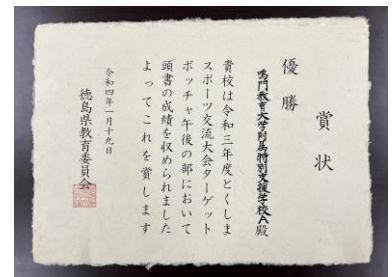 賞状
優勝
鳴門教育大学附属特別支援学校A殿
貴校は令和三年度とくしま
スポーツ交流大会ターゲット
ボッチャ午後の部において
頭書の成績を収められました
よってこれを賞します
令和四年一月十九日
徳島県教育委員会